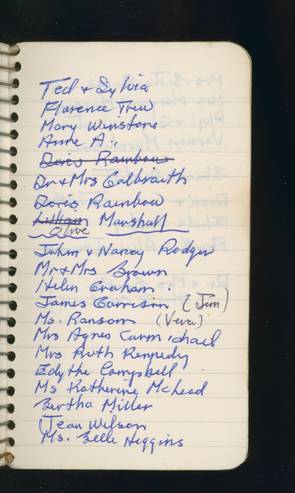 Ted & Sylvia
Florence Trew
Mary Winstone
Anne A.
Doris Rainbow
Dr & Mrs Galbraith
Doris Rainbow
Lilliam Marshall
Olive
John & Nancy Rodger
Mr & Mrs Brown
Helen Graham
James Garrison (Jim)
Ms. Ransom (Vera)
Mrs Agnes Carmichael
Mrs Ruth Kennedy
Edythe Campbell
Ms Katherine McLeod
Bertha Miller
Jean Wilson
Ms. Belle Higgins